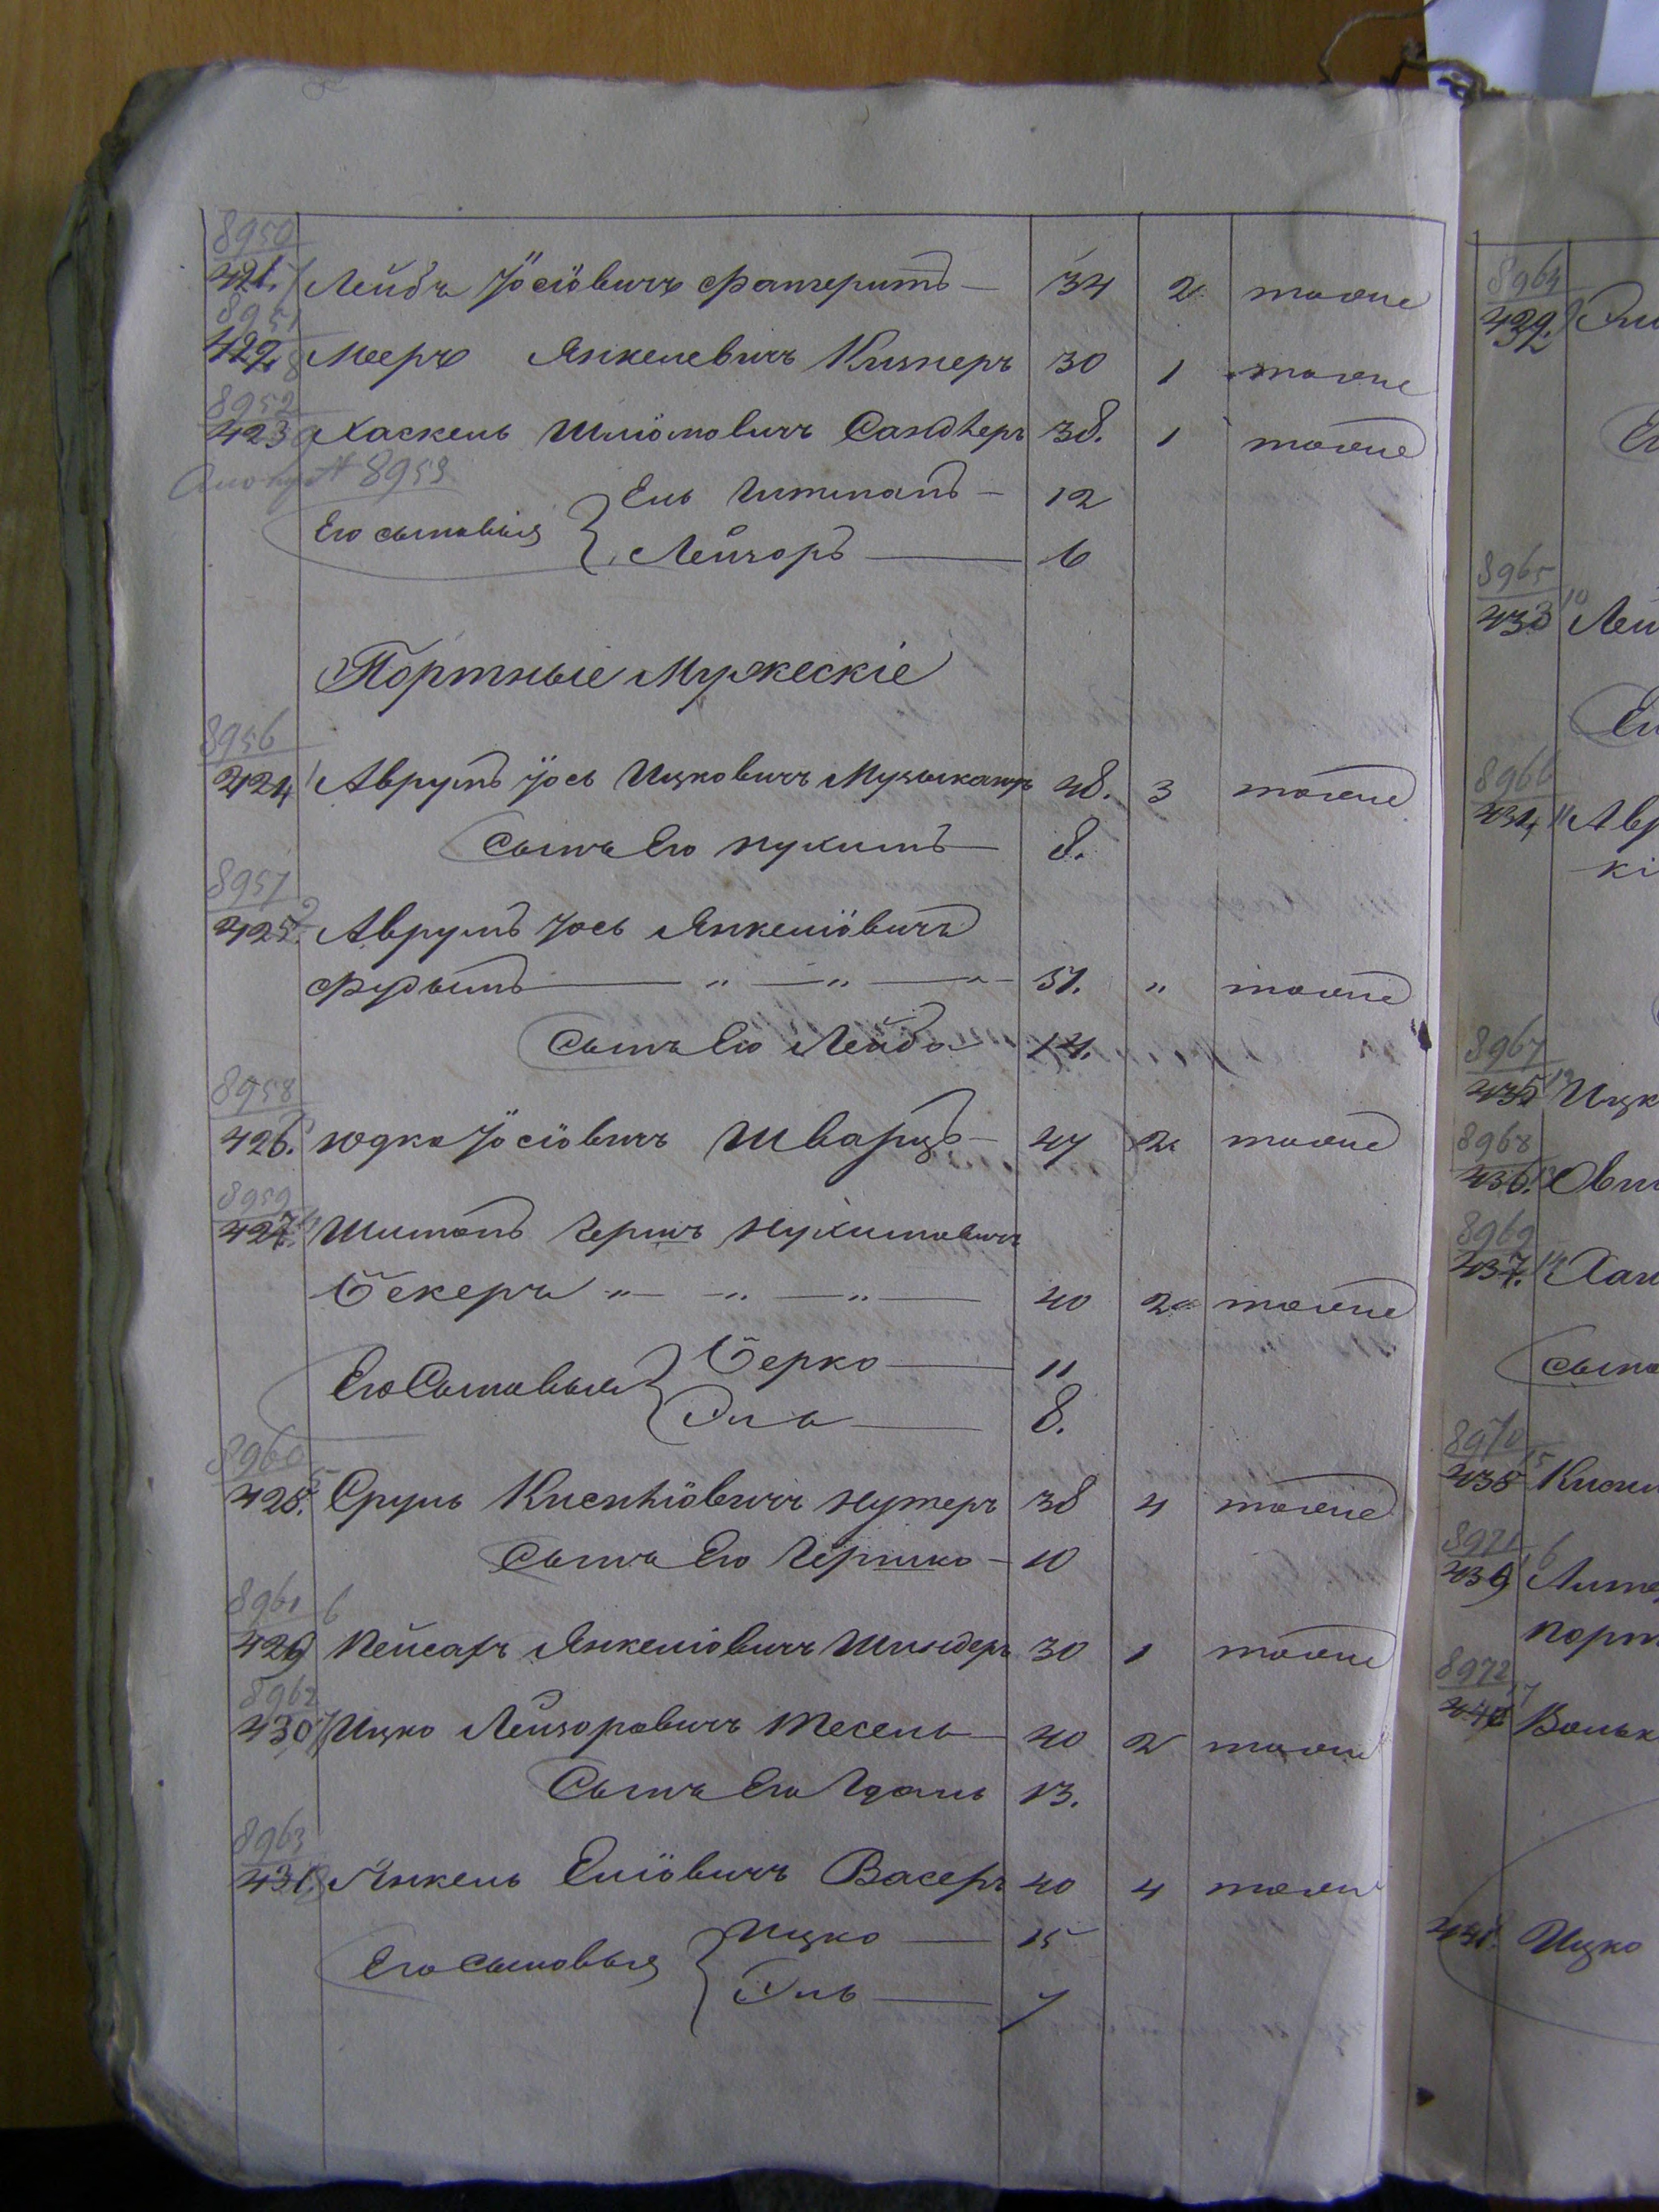 8950
421. Лейба Іосіовичъ 34 2 тоже
8951
422. 8 Мееръ Янкелевичъ Кишнеръ 30 1 тоже
8952
423 9 Хаскель Шліомовичъ Сандлеръ 38. 1 тоже
8953
Его сыновья Ель 12
Лейзоръ 6
Портные Мужескіе
8956
424 1 Аврумъ Іось Ицковичъ Музыкантъ 48. 3 тоже
Сынъ Его Нухимъ 8.
8957
425. 2 Аврумъ Іось Янкеліовичъ
Фудымъ 51. " тоже
Сынъ Его Лейба 14.
8958
426. Юдка Іосіовичъ Шварцъ 47 2 тоже
8959
427. Шимонъ Гершъ Нухимовичъ
Бекеръ 40 2 тоже
Его Сыновья Берко 11
Эль 8.
8960
428. 5 Сруль Нутеръ 38 4 тоже
Сынъ Его Гершко 10
8961
429 6 Пейсахъ Янкеліовичъ Шиндеръ 30 1 тоже
8962
430 7 Ицко Лейзоровичъ Тесель 40 2 тоже
Сынъ Его Гдаль 13.
8963
431. 8 Янкель Еліовичъ Васеръ 40 4 тоже
Его сыновья Ицко 15
Эль 7
8964
432
8965
433 10 Лей
8966
434 11 Авр
кі
8967
435 12 Ицк
8968
436. 13
8969
437. 14
сыно
8970
438 15
8971
439
порт
8972
440 17 Вольк
441. Ицко